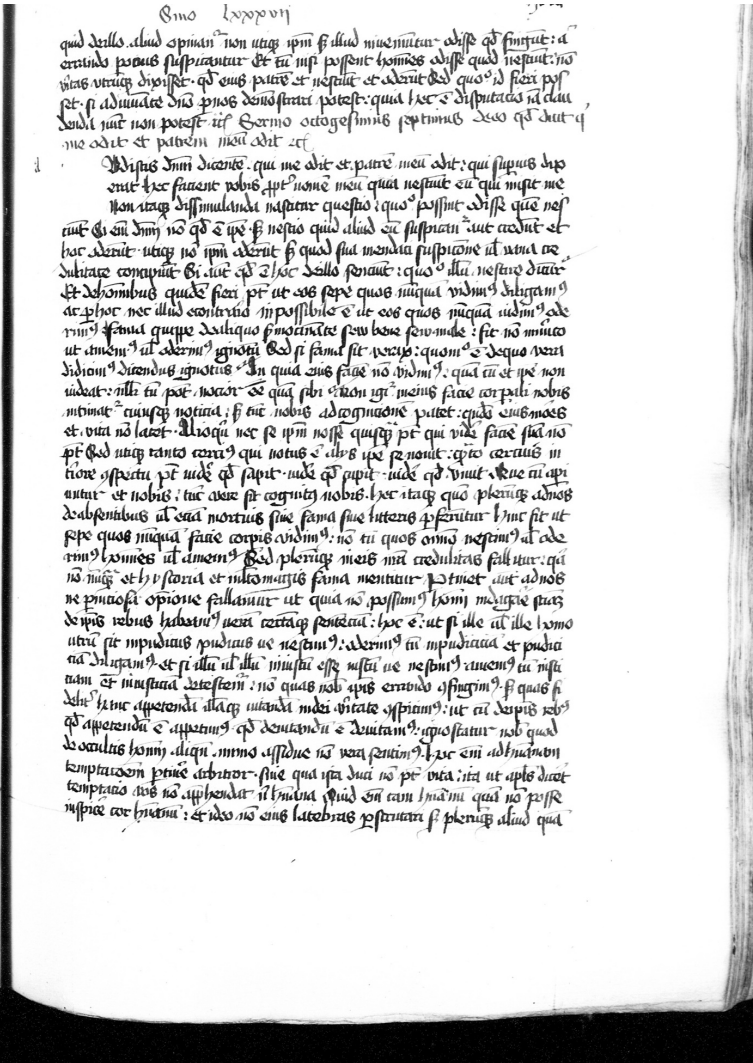 Smo lxxxvii
quid de illo aliud opinant᷒ non utiqꝫ ip̄m sꝫ illud inveniuntur odisse qd̄ fingūt : aū
errando potius suspicantur Et tn̄ nisi possent homīes odisse quod nesciūt : nō
v̓itas utrūqꝫ dixisset qd̄ eius patrē et nesciūt et oderūt Sed quoº id fieri pos
set si adiuvāte dn̄o ꝑ nos demōstrari potest : quia hec ē disputacio iā clau
denda nūc non potest Sermo octogesimus septimus de eo qd̄ dicit q
me odit et patrem meū odit
Udistis dn̄m dicentē qui me odit et patrē meū odit : qui supius dix
erat hec facient vobis ꝓpt᷒ nomē meū quia nesciūt eū qui misit me
Non itaqꝫ dissimulanda nascitur questio : quoº possint odisse quē nes
ciūt Si eī dm̄ nō qd̄ ē ipē sꝫ nescio quid aliud eū suspicant᷒ aut credūt et
hoc oderūt utiqꝫ nō ip̄m oderūt sꝫ quod sua mendaci suspicōne ul̄ vana cre
dulitate concipiūt Si aūt qd̄ ē hoc de illo senciūt : quoº illū nescire dicūt᷒
Et de hoīnibus quidē fieri pt̄ ut eos sepe quos nūquā vidimꝰ diligamꝰ
ac ꝑ hoc nec illud econtrario inpossibile ē ut eos quos nūquā vidimꝰ ode
rimꝰ Fama quippe de aliquo sꝫmocināte seu bene seu male : fit nō inmito
ut amemꝰ ul̄ oderimꝰ ignotū Sed si fama sit verax : quomº ē de quo vera
didicimꝰ dicendus ignotus An quia eius faciē nō vidimꝰ : quā cū et ipē non
videat : nulli tn̄ pot̄ nocior eē quā sibi Non igr̄ in eius facie corporali nobis
intimat᷒ cuiusqꝫ noticia : sꝫ tūc nobis ad cognicionē patet : quādo eius mōes
et vita nō latet Alioqūi nec se ip̄m nosse quisqꝫ pt̄ qui videre faciē suā nō
pt̄ Sed utiqꝫ tanto cerciꝰ qui notus ē aliis ipē se novit : qn̄to cercius in
tīore ꝯspectu pt̄ videre qd̄ sapit videre qd̄ cupit videre qd̄ vivit Que cū api
untur et nobis : tūc vere fit cognitꝰ nobis hec itaqꝫ quō plerūqꝫ ad nos
de absentibus ul̄ eciā mortuis sive fama sive litteris ꝑferūtur hinc fit ut
sepe quos nūquā facie corꝑis vidimꝰ : nō tn̄ quos om̄ino nescimꝰ ul̄ ode
rimꝰ hoīnes ul̄ amemꝰ Sed plerūqꝫ in eis nr̄a credulitas fallitur : qa
nō nūqꝫ et hystoria et multomagis fama mentitur Ptinet aūt ad nos
ne ꝑniciosa opīione fallamur ut quia nō possumꝰ homī indagare sciāꝫ
de ipīs rebus habeamꝰ verā certāqꝫ sentenciā : hoc ē ut si ille ul̄ ille homo
utrū sit inpudicus pudicus ve nescimꝰ : oderimꝰ tn̄ inpudiciciā et pudici
ciā diligamꝰ et si illū ul̄ illū iniustū esse iustū ve nescimꝰ amemꝰ tn̄ iusti
ciam et iniusticiā detestem᷒ : nō quas nob̄ ipīs errando ꝯfingimꝰ sꝫ quas fi
delit᷒ hanc appetendā illāqꝫ vitandā in dei v̓itate ꝯspicimꝰ : ut cū de ipīs rebꝰ
qd̄ appetendū ē appetimꝰ qd̄ devitandū ē devitamꝰ : ignoscatur nob̄ quod
de occultis homī aliqn̄ immo assidue nō vera sentimꝰ hoc enī ad humanam
temptacōem ꝑtinē arbitror sine qua ista duci nō pt̄ vita : ita ut ap̄ls dicēt
temptacio vos nō apphendat n̄ humana Quid enī tam humānū quā nō posse
inspice cor humanū : et ideo nō eius latebras ꝑscrutari sꝫ plerūqꝫ aliud quā